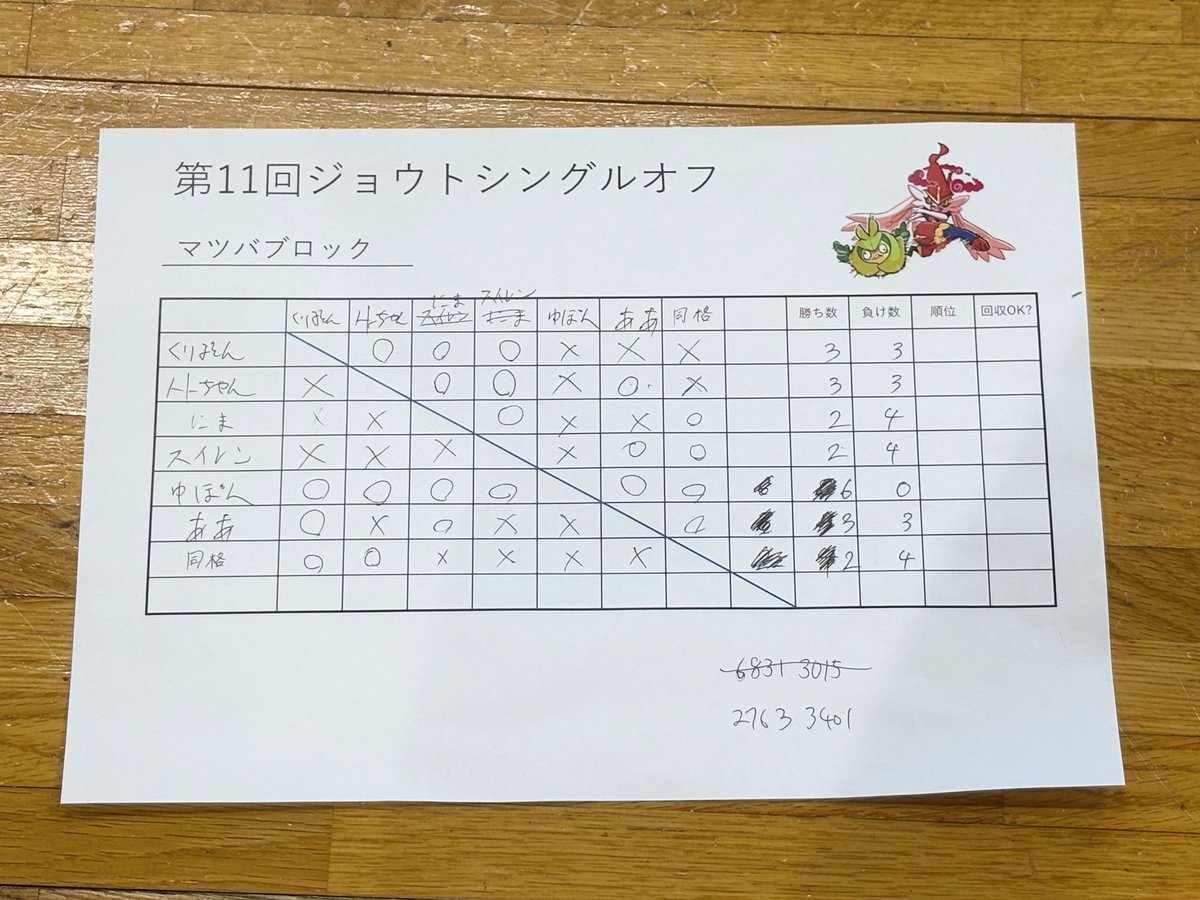 第11回ジョウトシングルオフ
マツバブロック
にま スイレン
くりぽそん トトちゃん スイレン にま ゆぽん ああ 同格 勝ち数 負け数 順位 回収OK?
くりぽそん ○ ○ ○ × × × 3 3
トトちゃん × ○ ○ × ○ × 3 3
にま × × ○ × × ○ 2 4
スイレン × × × × ○ ○ 2 4
ゆぽん ○ ○ ○ ○ ○ ○ 6 0
ああ ○ × ○ × × ○ 3 3
同格 ○ ○ × × × × 2 4
6831 3015
2763 3401